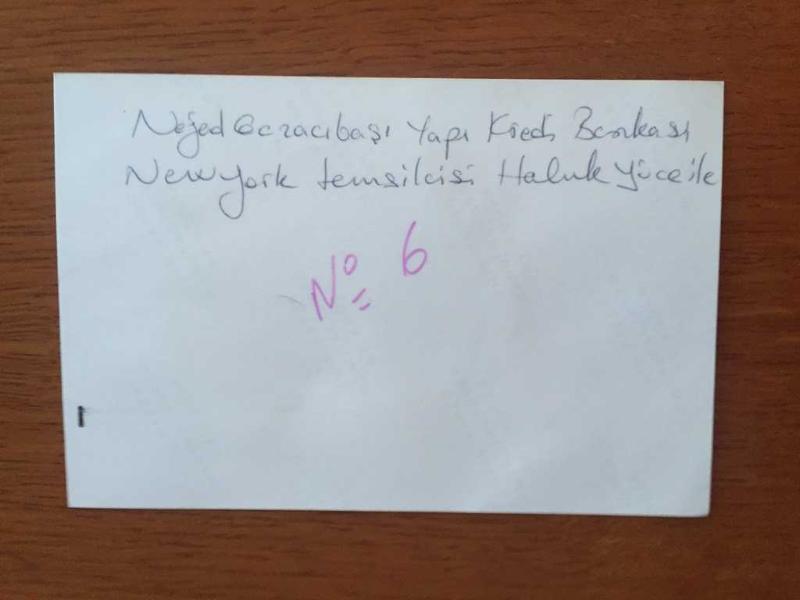 Nejed Eczacıbaşı Yapı Kredi Bankası
Newyork temsilcisi Haluk Yüce ile
Nº 6